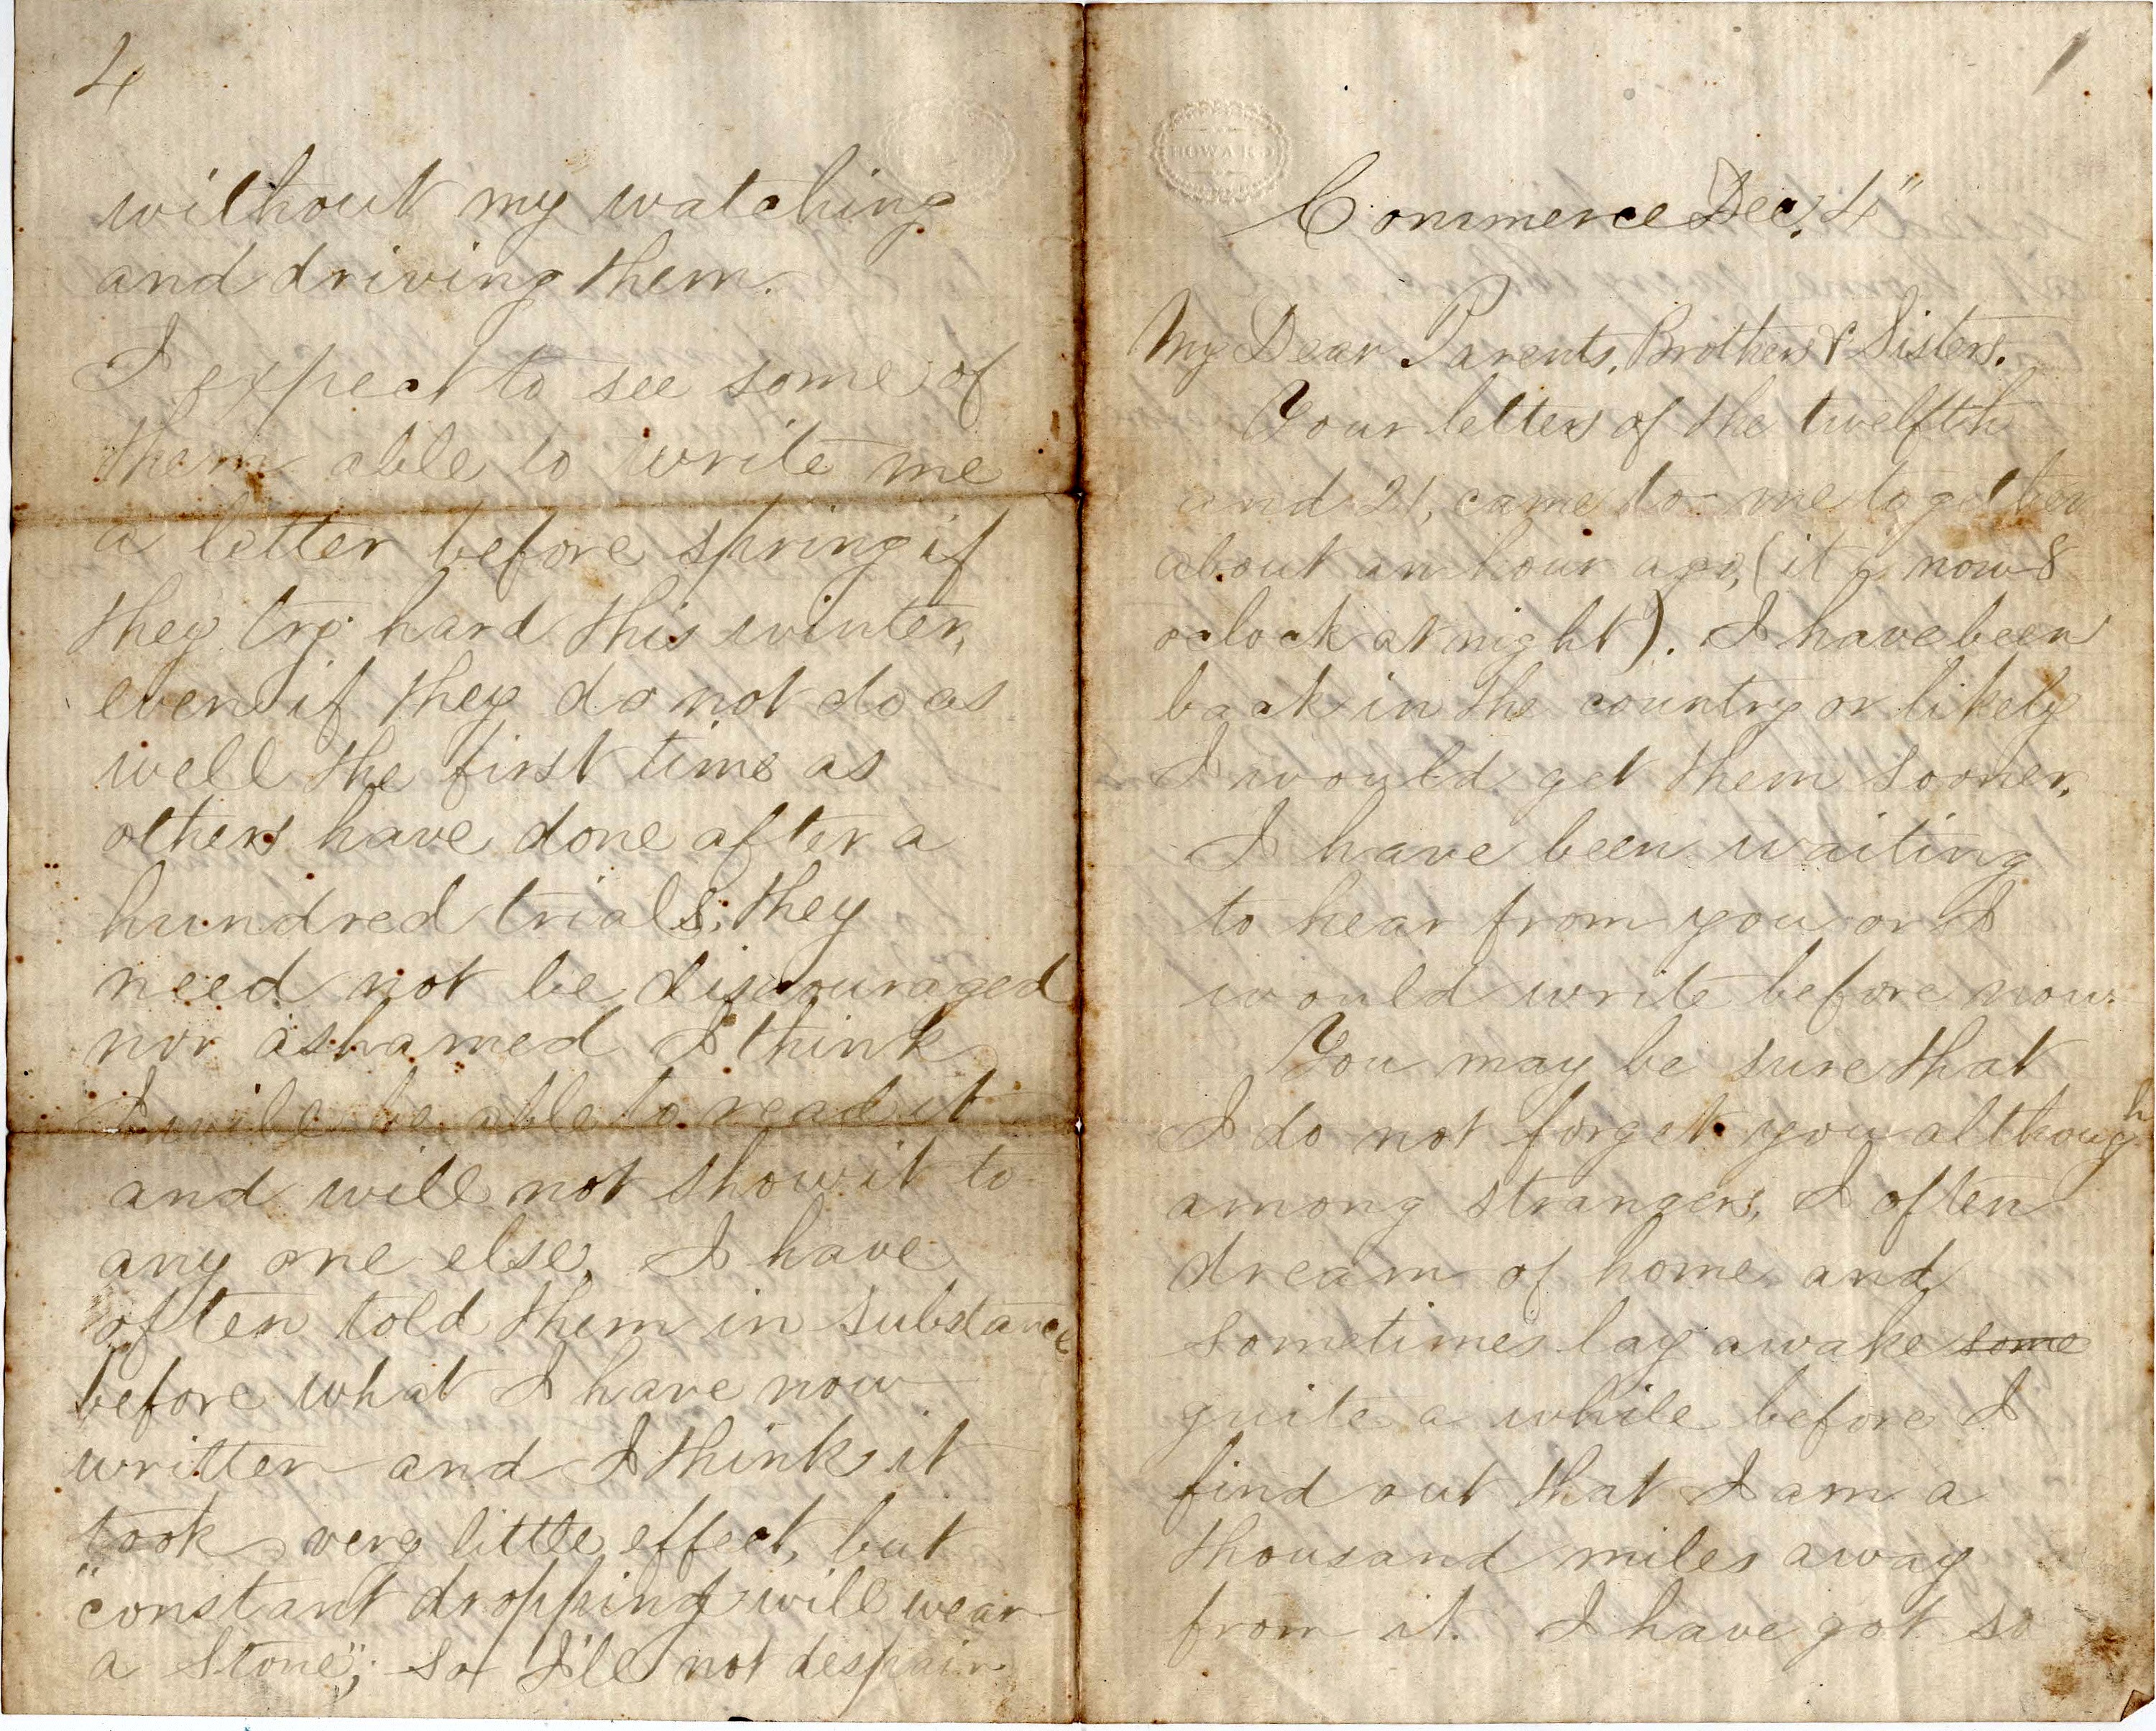 4
without my watching
and driving them.
I expect to see some of
them able to write me
a letter before spring if
they try hard this winter,
even if they do not do as
well the first time as
others have done after a
hundred trials; they
need not be discouraged
nor ashamed I think
I will be able to read it
and will not show it to
any one else, I have
often told them in substance
before what I have now
written and I think it
took very little effect, but
"constant dropping will wear
a stone"; so I'le not despair
1
HOWARD
Commerce Dec. 4"
My Dear Parents, Brothers & Sisters.
Your letters of the twelfth
and 21, came to me together
about an hour ago, (it is now 8
oclock at night). I have been
back in the country or likely
I would get them sooner,
I have been waiting
to hear from you or I
would write before now.
You may be sure that
I do not forget you although
among strangers, I often
dream of home and
sometimes lay awake some
quite a while before I
find out that I am a
thousand miles away
from it. I have got so